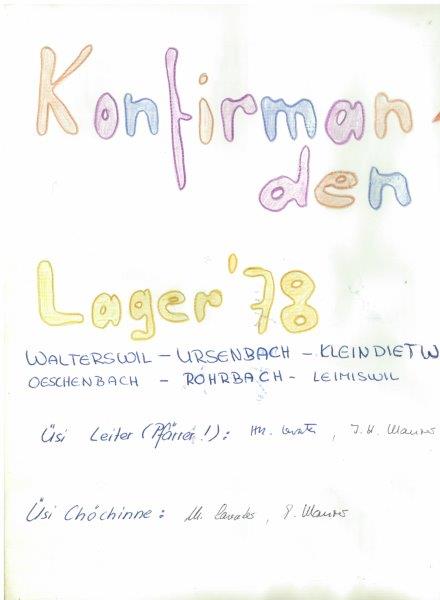 Konfirman-
den
Lager '78
WALTERSWIL – URSENBACH – KLEINDIETW
OESCHENBACH – ROHRBACH – LEIMISWIL
Üsi Leiter (Pfärrer!):
Üsi Chöchinne: M.